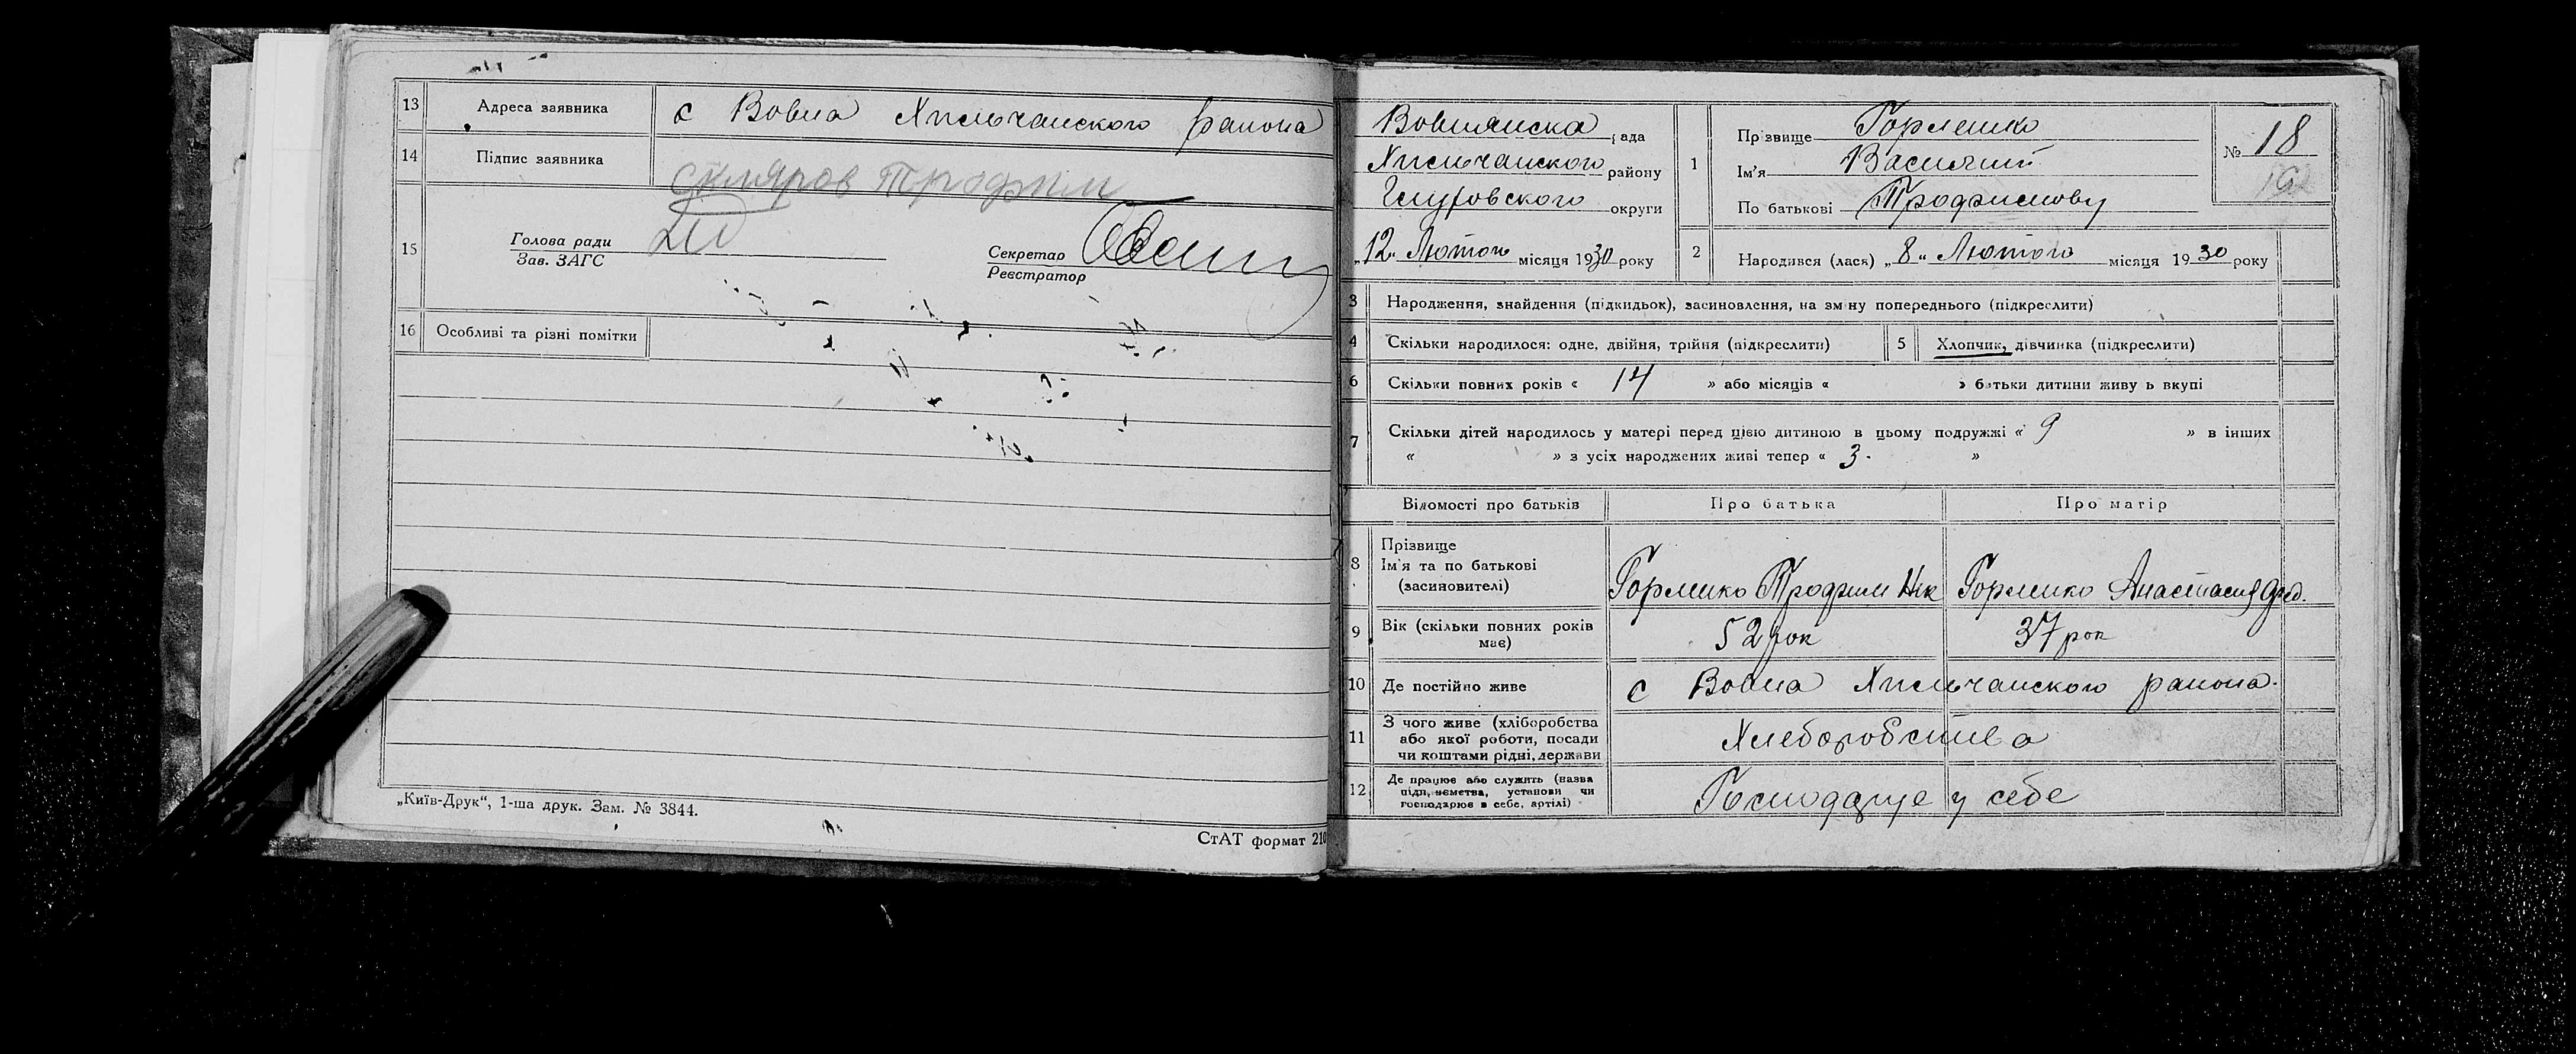 13 Адреса заявника с Вовна Хильчанского района
14 Підпис заявника
Скляров Трофим
15 Голова ради
Зав. ЗАГС
Секретар
Реєстратор
16 Особливі та різні помітки
„Київ-Друк“, 1-ша друк. Зам. № 3844.
СтАТ формат 210
Вовнянска рада
Хильчанского району
Глуховского округи
„12„ Лютого місяця 1930 року
1 Прізвище Горленко
Ім'я Василий
По батькові Трофимову
№ 18
2 Народився (лася) „8„ Лютого місяця 1930 року
3 Народження, знайдення (підкидьок), засиновлення, на зміну попереднього (підкреслити)
4 Скільки народилося: одне, двійня, трійня (підкреслити) 5 Хлопчик, дівчинка (підкреслити)
6 Скільки повних років « 14 » або місяців « » батьки дитини живуть вкупі
7 Скільки дітей народилось у матері перед цією дитиною в цьому подружжі « 9 » в інших
« » з усіх народжених живі тепер « 3. »
Відомості про батьків Про батька Про матір
8 Прізвище
Ім'я та по батькові
(засиновителі)
Горленко Трофим Ник Горленко Анастасия
9 Вік (скільки повних років має) 52 рок 37 рок
10 Де постійно живе с Вовна Хильчанского района.
11 З чого живе (хліборобства
або якої роботи, посади
чи коштами рідні, держави
Хлеборобства
12 Де працює або служить (назва
підприємства, установи чи
господарює в себе, артілі)
Господарує у себе